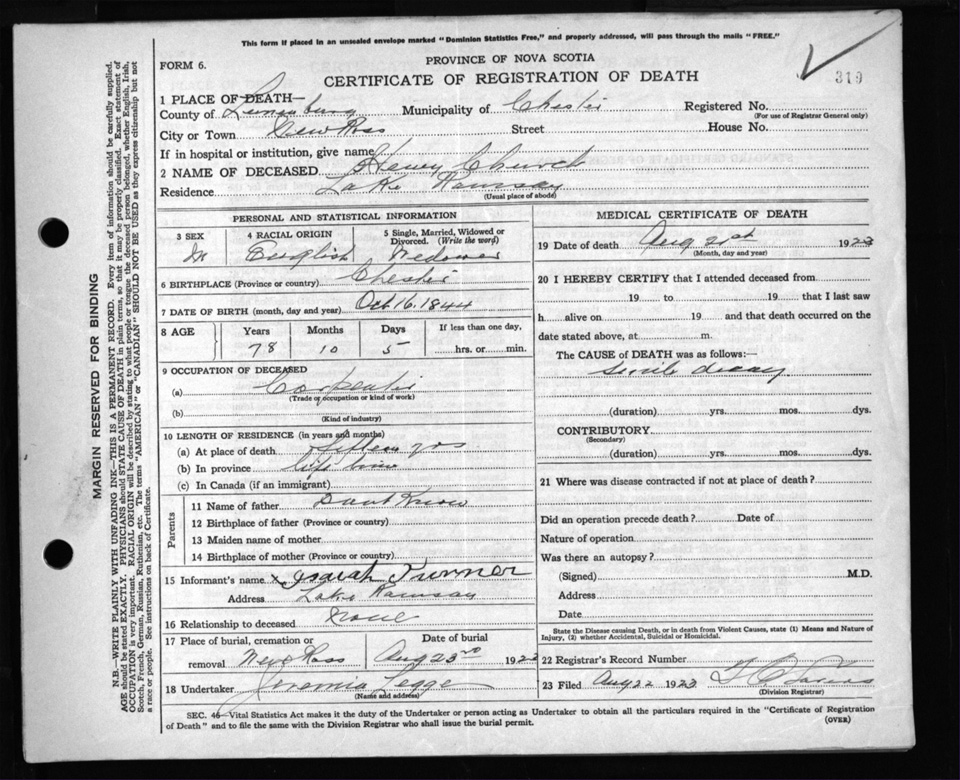 This form if placed in an unsealed envelope marked "Dominion Statistics Free," and properly addressed, will pass through the mails "FREE."
FORM 6.
PROVINCE OF NOVA SCOTIA
CERTIFICATE OF REGISTRATION OF DEATH
319
1 PLACE OF DEATH—
County of Lunenburg Municipality of Chester Registered No.
(For use of Registrar General only)
City or Town New Ross Street House No.
If in hospital or institution, give name
2 NAME OF DECEASED Henry Church
Residence Lake Ramsay
(Usual place of abode)
PERSONAL AND STATISTICAL INFORMATION
3 SEX M
4 RACIAL ORIGIN English
5 Single, Married, Widowed or Divorced. (Write the word) Wedower
6 BIRTHPLACE (Province or country) Chester
7 DATE OF BIRTH (month, day and year) Oct 16. 1844
8 AGE Years Months Days If less than one day,
78 10 5 hrs. or min.
9 OCCUPATION OF DECEASED
(a) Carpenter
(Trade or occupation or kind of work)
(b)
(Kind of industry)
10 LENGTH OF RESIDENCE (in years and months)
(a) At place of death fifteen yrs
(b) In province life time
(c) In Canada (if an immigrant)
Parents
11 Name of father Dont Know
12 Birthplace of father (Province or country)
13 Maiden name of mother
14 Birthplace of mother (Province or country)
15 Informant's name x Isaiah Turner
Address Lake Ramsay
16 Relationship to deceased None
17 Place of burial, cremation or removal New Ross
Date of burial Aug 23rd 1923
18 Undertaker Jeremia Legge
(Name and address)
MEDICAL CERTIFICATE OF DEATH
19 Date of death Aug 21st 1923
(Month, day and year)
20 I HEREBY CERTIFY that I attended deceased from
19 to 19 that I last saw
h alive on 19 and that death occurred on the
date stated above, at m.
The CAUSE of DEATH was as follows:—
Senile decay
(duration) yrs. mos. dys.
CONTRIBUTORY
(Secondary)
(duration) yrs. mos. dys.
21 Where was disease contracted if not at place of death?
Did an operation precede death? Date of
Nature of operation
Was there an autopsy?
(Signed) M.D.
Address
Date
State the Disease causing Death, or in death from Violent Causes, state (1) Means and Nature of
Injury, (2) whether Accidental, Suicidal or Homicidal.
22 Registrar's Record Number
23 Filed Aug 22 1923
(Division Registrar)
SEC. 46—Vital Statistics Act makes it the duty of the Undertaker or person acting as Undertaker to obtain all the particulars required in the "Certificate of Registration
of Death" and to file the same with the Division Registrar who shall issue the burial permit.
(OVER)
MARGIN RESERVED FOR BINDING
N.B.—WRITE PLAINLY WITH UNFADING INK—THIS IS A PERMANENT RECORD. Every item of information should be carefully supplied.
AGE should be stated EXACTLY. PHYSICIANS should STATE CAUSE OF DEATH in plain terms, so that it may be properly classified. Exact statement of
OCCUPATION is very important. RACIAL ORIGIN will be described by stating to what people or tongue the deceased person belonged, whether English, Irish,
Scotch, French, German, Russian, Ruthenian, etc. The terms "AMERICAN" or "CANADIAN" SHOULD NOT BE USED as they express citizenship but not
a race or people. See instructions on back of Certificate.